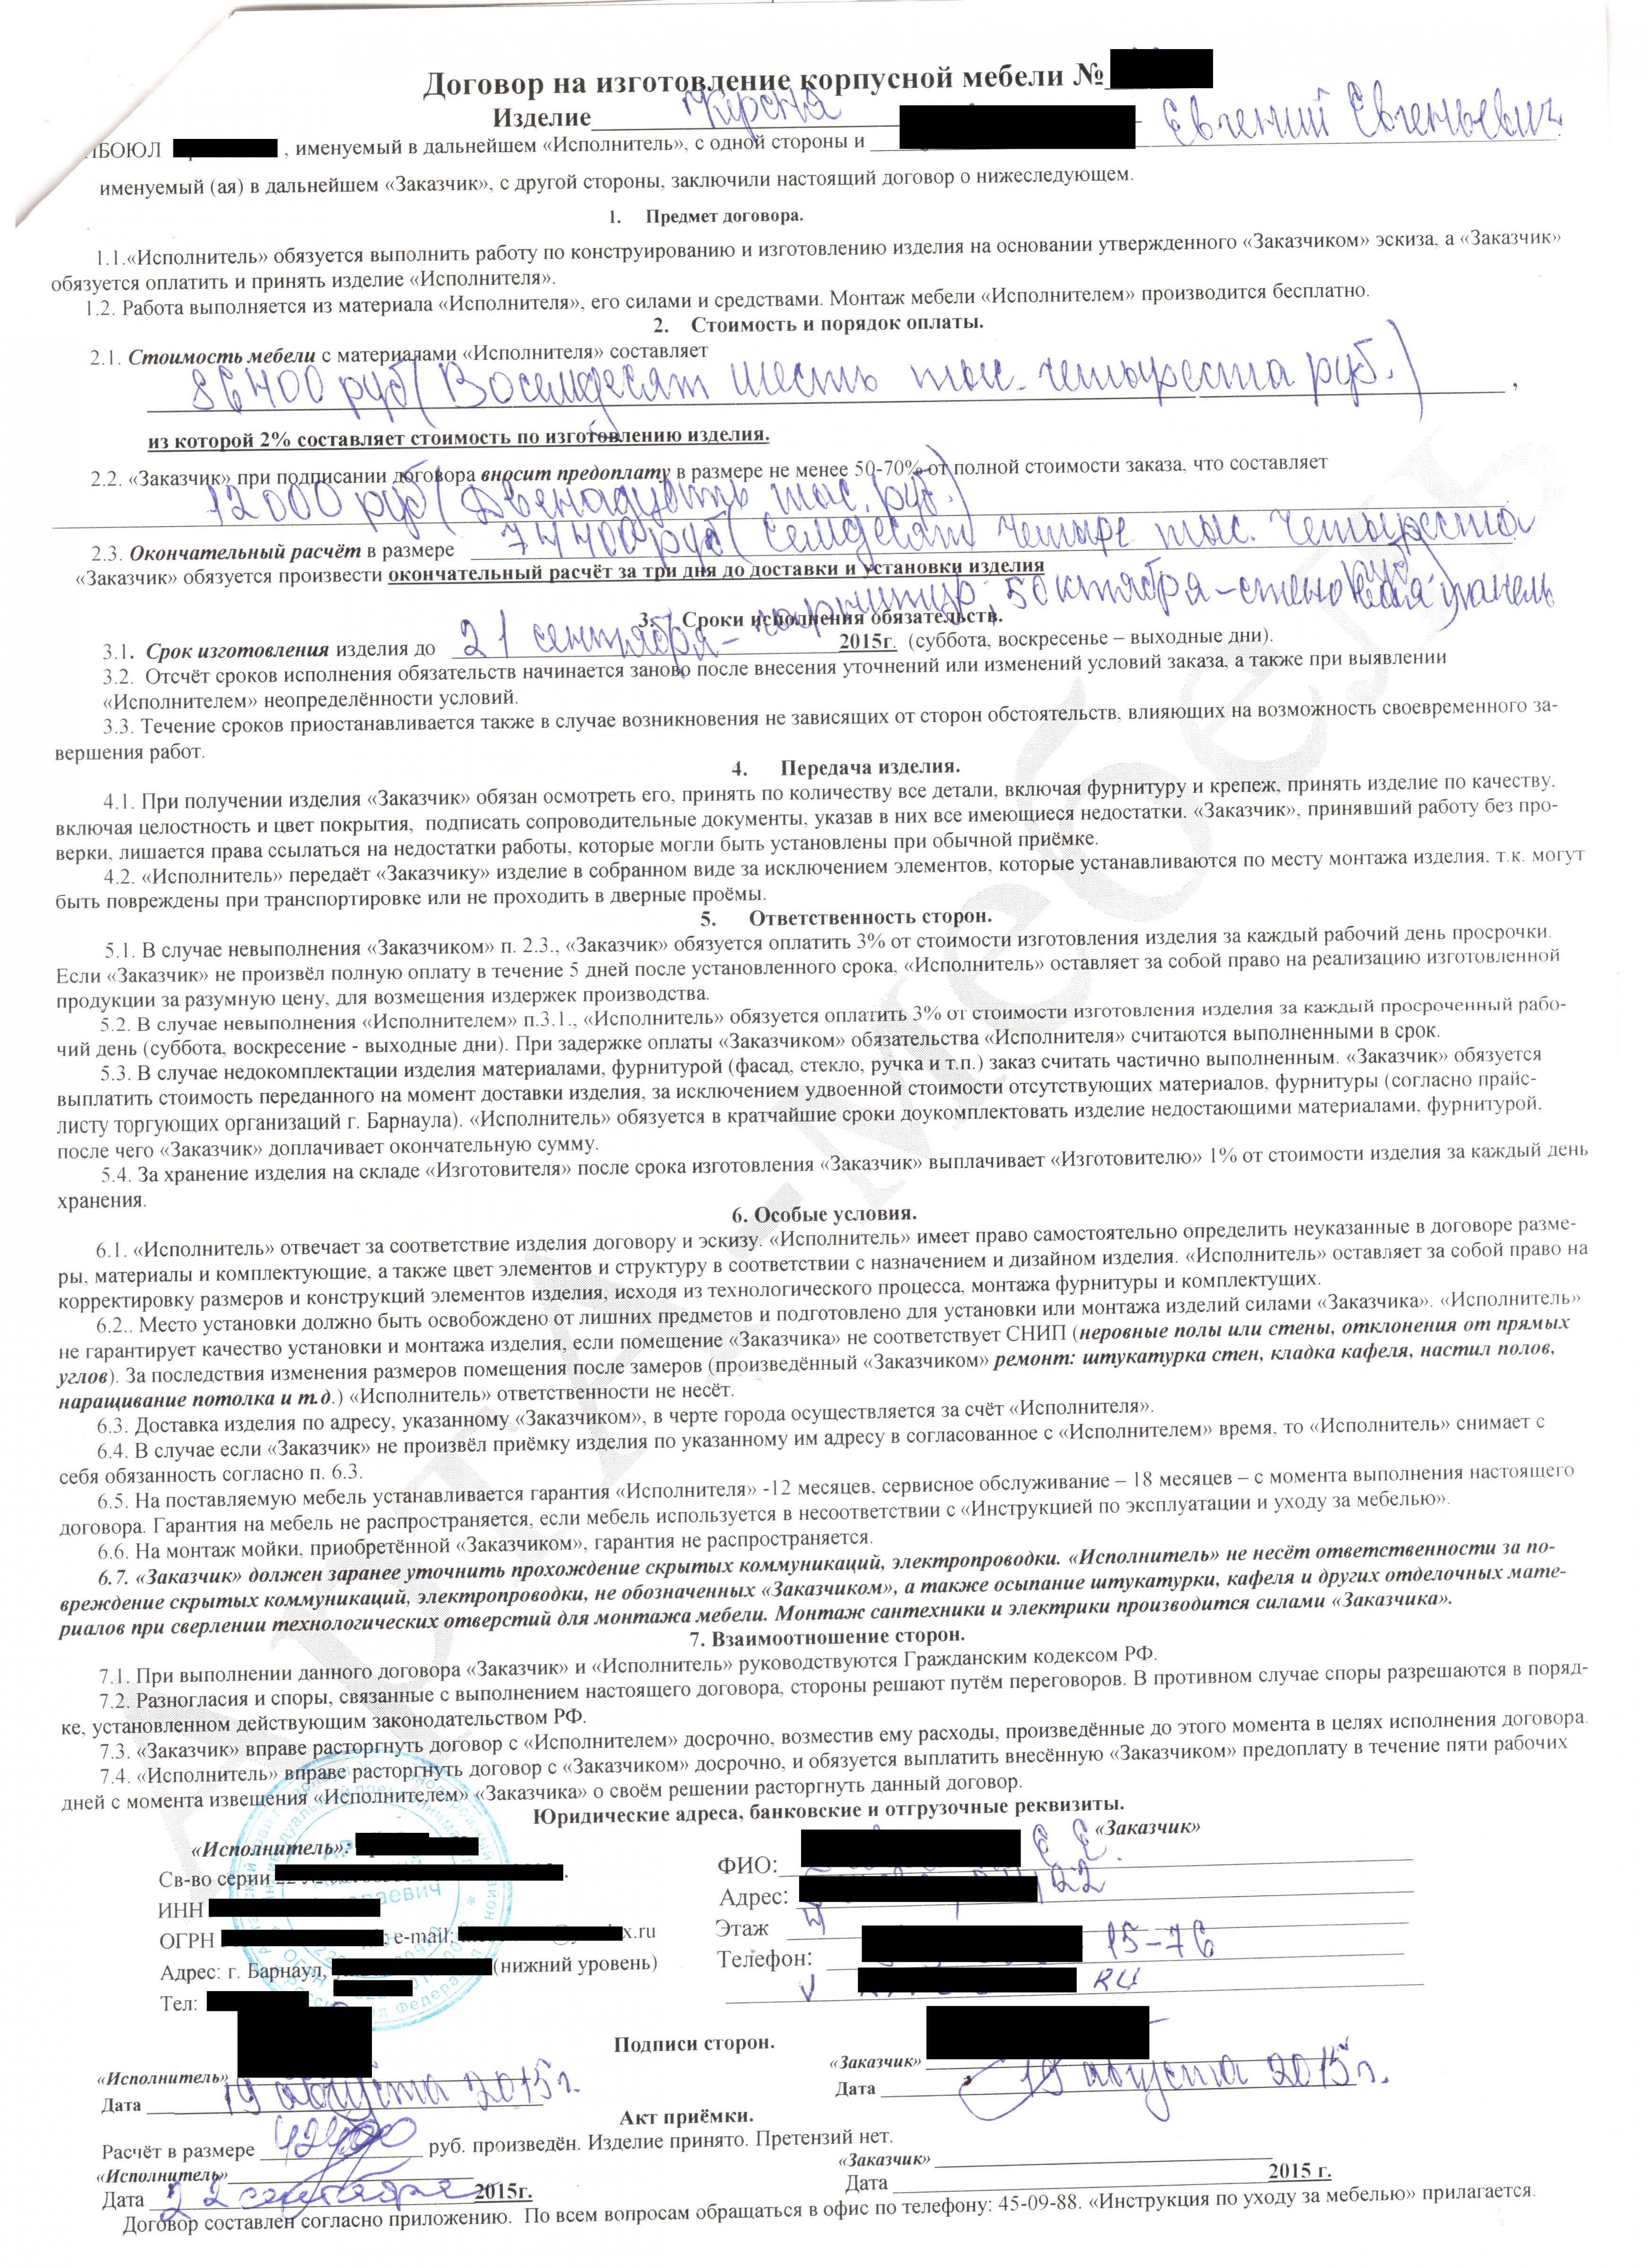 Договор на изготовление корпусной мебели №
Изделие Кухня
ПБОЮЛ , именуемый в дальнейшем «Исполнитель», с одной стороны и Евгений Евгеньевич
именуемый (ая) в дальнейшем «Заказчик», с другой стороны, заключили настоящий договор о нижеследующем.
1. Предмет договора.
1.1.«Исполнитель» обязуется выполнить работу по конструированию и изготовлению изделия на основании утвержденного «Заказчиком» эскиза, а «Заказчик»
обязуется оплатить и принять изделие «Исполнителя».
1.2. Работа выполняется из материала «Исполнителя», его силами и средствами. Монтаж мебели «Исполнителем» производится бесплатно.
2. Стоимость и порядок оплаты.
2.1. Стоимость мебели с материалами «Исполнителя» составляет
86400 руб (Восемдесят шесть тыс. четыреста руб.) ,
из которой 2% составляет стоимость по изготовлению изделия.
2.2. «Заказчик» при подписании договора вносит предоплату в размере не менее 50-70% от полной стоимости заказа, что составляет
12000 руб (Двенадцать тыс. руб.)
2.3. Окончательный расчёт в размере 74400 руб (Семдесят четыре тыс. четыреста руб)
«Заказчик» обязуется произвести окончательный расчёт за три дня до доставки и установки изделия
3. Сроки исполнения обязательств.
3.1. Срок изготовления изделия до 21 сентября - гарнитур, 5 октября - стеновая панель 2015г. (суббота, воскресенье – выходные дни).
3.2. Отсчёт сроков исполнения обязательств начинается заново после внесения уточнений или изменений условий заказа, а также при выявлении
«Исполнителем» неопределённости условий.
3.3. Течение сроков приостанавливается также в случае возникновения не зависящих от сторон обстоятельств, влияющих на возможность своевременного за-
вершения работ.
4. Передача изделия.
4.1. При получении изделия «Заказчик» обязан осмотреть его, принять по количеству все детали, включая фурнитуру и крепеж, принять изделие по качеству,
включая целостность и цвет покрытия, подписать сопроводительные документы, указав в них все имеющиеся недостатки. «Заказчик», принявший работу без про-
верки, лишается права ссылаться на недостатки работы, которые могли быть установлены при обычной приёмке.
4.2. «Исполнитель» передаёт «Заказчику» изделие в собранном виде за исключением элементов, которые устанавливаются по месту монтажа изделия, т.к. могут
быть повреждены при транспортировке или не проходить в дверные проёмы.
5. Ответственность сторон.
5.1. В случае невыполнения «Заказчиком» п. 2.3., «Заказчик» обязуется оплатить 3% от стоимости изготовления изделия за каждый рабочий день просрочки.
Если «Заказчик» не произвёл полную оплату в течение 5 дней после установленного срока, «Исполнитель» оставляет за собой право на реализацию изготовленной
продукции за разумную цену, для возмещения издержек производства.
5.2. В случае невыполнения «Исполнителем» п.3.1., «Исполнитель» обязуется оплатить 3% от стоимости изготовления изделия за каждый просроченный рабо-
чий день (суббота, воскресение - выходные дни). При задержке оплаты «Заказчиком» обязательства «Исполнителя» считаются выполненными в срок.
5.3. В случае недокомплектации изделия материалами, фурнитурой (фасад, стекло, ручка и т.п.) заказ считать частично выполненным. «Заказчик» обязуется
выплатить стоимость переданного на момент доставки изделия, за исключением удвоенной стоимости отсутствующих материалов, фурнитуры (согласно прайс-
листу торгующих организаций г. Барнаула). «Исполнитель» обязуется в кратчайшие сроки доукомплектовать изделие недостающими материалами, фурнитурой,
после чего «Заказчик» доплачивает окончательную сумму.
5.4. За хранение изделия на складе «Изготовителя» после срока изготовления «Заказчик» выплачивает «Изготовителю» 1% от стоимости изделия за каждый день
хранения.
6. Особые условия.
6.1. «Исполнитель» отвечает за соответствие изделия договору и эскизу. «Исполнитель» имеет право самостоятельно определить неуказанные в договоре разме-
ры, материалы и комплектующие, а также цвет элементов и структуру в соответствии с назначением и дизайном изделия. «Исполнитель» оставляет за собой право на
корректировку размеров и конструкций элементов изделия, исходя из технологического процесса, монтажа фурнитуры и комплектущих.
6.2.. Место установки должно быть освобождено от лишних предметов и подготовлено для установки или монтажа изделий силами «Заказчика». «Исполнитель»
не гарантирует качество установки и монтажа изделия, если помещение «Заказчика» не соответствует СНИП (неровные полы или стены, отклонения от прямых
углов). За последствия изменения размеров помещения после замеров (произведённый «Заказчиком» ремонт: штукатурка стен, кладка кафеля, настил полов,
наращивание потолка и т.д.) «Исполнитель» ответственности не несёт.
6.3. Доставка изделия по адресу, указанному «Заказчиком», в черте города осуществляется за счёт «Исполнителя».
6.4. В случае если «Заказчик» не произвёл приёмку изделия по указанному им адресу в согласованное с «Исполнителем» время, то «Исполнитель» снимает с
себя обязанность согласно п. 6.3.
6.5. На поставляемую мебель устанавливается гарантия «Исполнителя» -12 месяцев, сервисное обслуживание – 18 месяцев – с момента выполнения настоящего
договора. Гарантия на мебель не распространяется, если мебель используется в несоответствии с «Инструкцией по эксплуатации и уходу за мебелью».
6.6. На монтаж мойки, приобретённой «Заказчиком», гарантия не распространяется.
6.7. «Заказчик» должен заранее уточнить прохождение скрытых коммуникаций, электропроводки. «Исполнитель» не несёт ответственности за по-
вреждение скрытых коммуникаций, электропроводки, не обозначенных «Заказчиком», а также осыпание штукатурки, кафеля и других отделочных мате-
риалов при сверлении технологических отверстий для монтажа мебели. Монтаж сантехники и электрики производится силами «Заказчика».
7. Взаимоотношение сторон.
7.1. При выполнении данного договора «Заказчик» и «Исполнитель» руководствуются Гражданским кодексом РФ.
7.2. Разногласия и споры, связанные с выполнением настоящего договора, стороны решают путём переговоров. В противном случае споры разрешаются в поряд-
ке, установленном действующим законодательством РФ.
7.3. «Заказчик» вправе расторгнуть договор с «Исполнителем» досрочно, возместив ему расходы, произведённые до этого момента в целях исполнения договора.
7.4. «Исполнитель» вправе расторгнуть договор с «Заказчиком» досрочно, и обязуется выплатить внесённую «Заказчиком» предоплату в течение пяти рабочих
дней с момента извещения «Исполнителем» «Заказчика» о своём решении расторгнуть данный договор.
Юридические адреса, банковские и отгрузочные реквизиты.
«Исполнитель»: «Заказчик»
Св-во серии ФИО: Е. Е.
ИНН Адрес: 22
ОГРН e-mail: x.ru Этаж
Адрес: г. Барнаул, (нижний уровень) Телефон: 15-76
Тел: RU
Подписи сторон.
«Исполнитель» «Заказчик»
Дата 19 августа 2015г. Дата 19 августа 2015г.
Акт приёмки.
Расчёт в размере 42400 руб. произведён. Изделие принято. Претензий нет.
«Исполнитель» «Заказчик»
Дата 22 сентября 2015г. Дата 2015 г.
Договор составлен согласно приложению. По всем вопросам обращаться в офис по телефону: 45-09-88. «Инструкция по уходу за мебелью» прилагается.